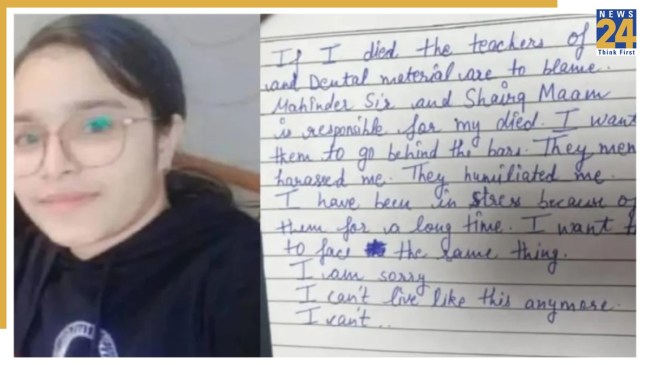 NEWS
24
Think First
If I died the teachers of
and Dental material are to blame.
Mahinder Sir and Shairg Maam
is responsible for my died. I want
them to go behind the bars. They men
harassed me. They humiliated me.
I have been in stress because of
them for a long time. I want t
to face the same thing.
I am sorry
I can't live like this anymore.
I can't..